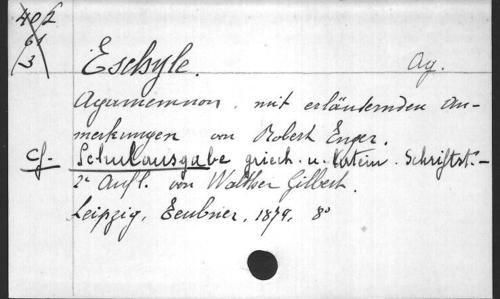 402
61
3
Eschyle.
Ag.
Agamemnon, mit erläuternden An-
merkungen von Robert Enger.
Cf. Schulausgabe griech. u. latein. Schriftst. -
2e Aufl. von Walther Gilbert.
Leipzig, Teubner, 1874, 8°